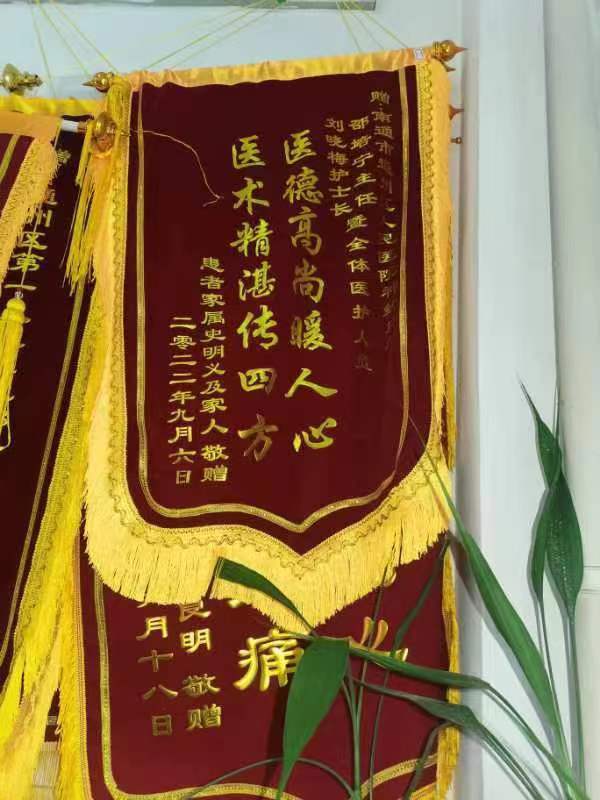 赠:南通市通州区人民医院
邵培宁主任暨全体医护人员
刘晓梅护士长
医德高尚暖人心
医术精湛传四方
患者家属史明义及家人敬赠
二零二二年九月六日
通州区第一
痛
良明 敬赠
月十八日